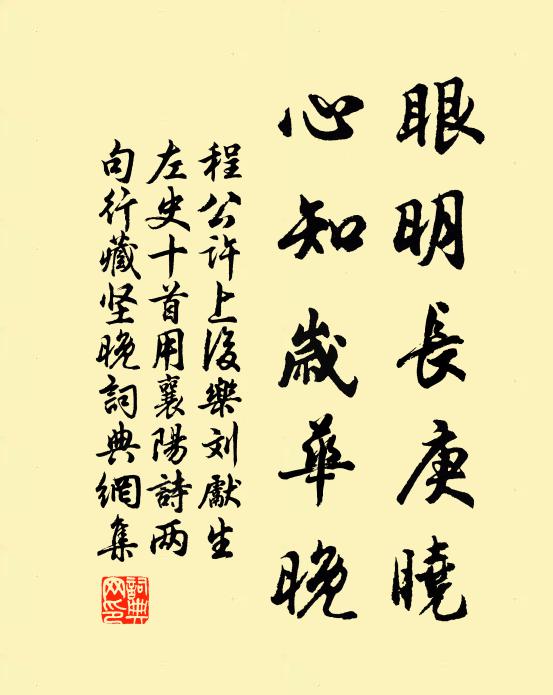 眼明長庚曉
心知歲華晚
程公許上後樂刘獻生
左史十首用襄陽詩两
句行藏坚晚詞典網集
詞典网印